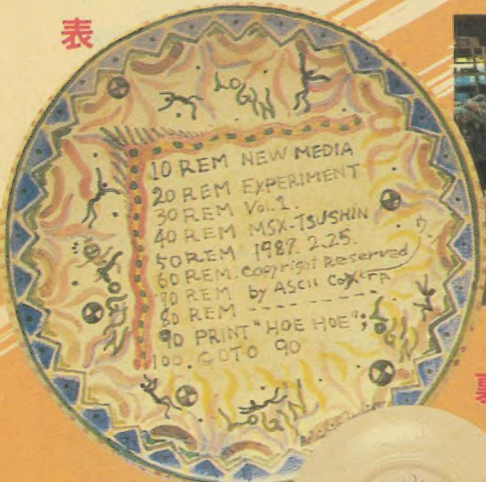 表
LOGiN
10 REM NEW MEDIA
20 REM EXPERIMENT
30 REM Vol.1.
40 REM MSX-TSUSHIN
50 REM 1987. 2.25.
60 REM Copyright Reserved
70 REM by ASCII
80 REM ---------
90 PRINT "HOE HOE";
100. GOTO 90
LOGiN
LOGiN